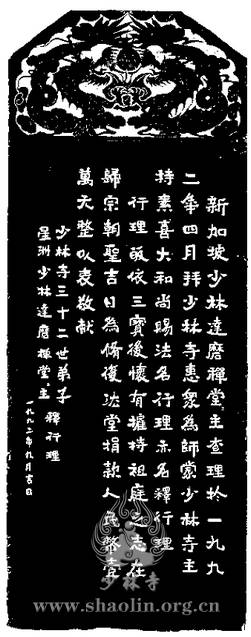 新加坡少林達磨禪堂主查理於一九九
二年四月拜少林寺惠眾為師蒙少林寺主
持素喜大和尚賜法名行理亦名釋行理
行理敬依三寶後懷有護持祖庭之志在
歸宗朝聖吉日為脩復法堂捐款人民幣壹
萬元整以表敬獻
少林寺三十二世弟子
星洲少林達磨禪堂主 釋行理
一九九二年九月吉日
少林寺
www.shaolin.org.cn